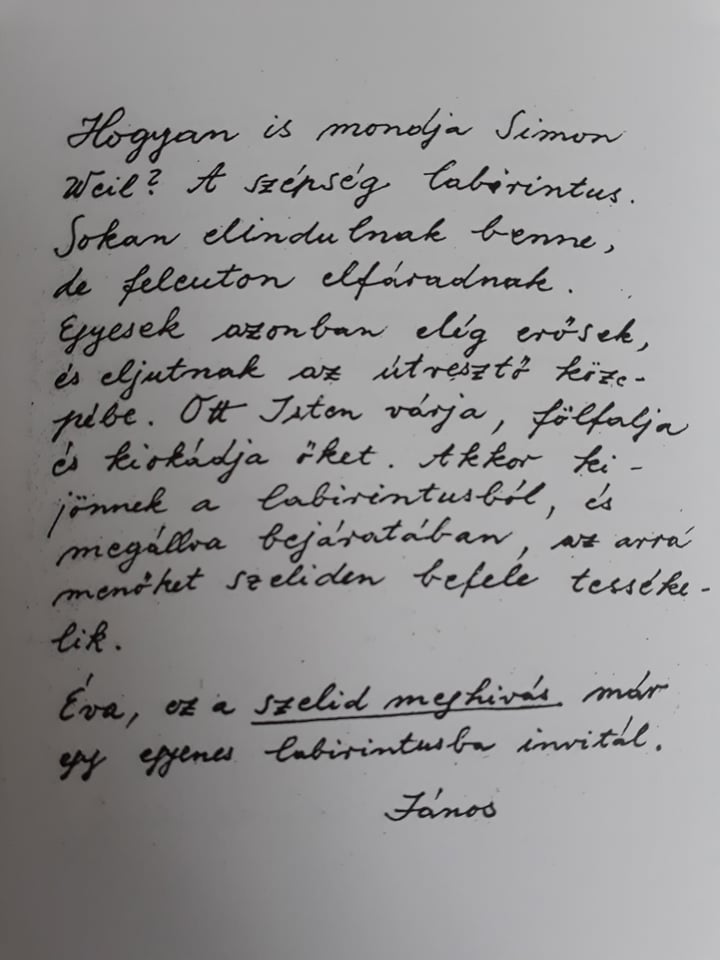 Hogyan is mondja Simon
Weil? A szépség labirintus.
Sokan elindulnak benne,
de feleuton elfáradnak.
Egyesek azonban elég erősek,
és eljutnak az útvesztő köze-
pébe. Ott Isten várja, fölfalja
és kiokádja őket. Akkor ki-
jönnek a labirintusból, és
megállva bejáratában, az arra
menőket szeliden befele tesséke-
lik.
Éva, ez a szelid meghivás már
egy egyenes labirintusba invitál.
János